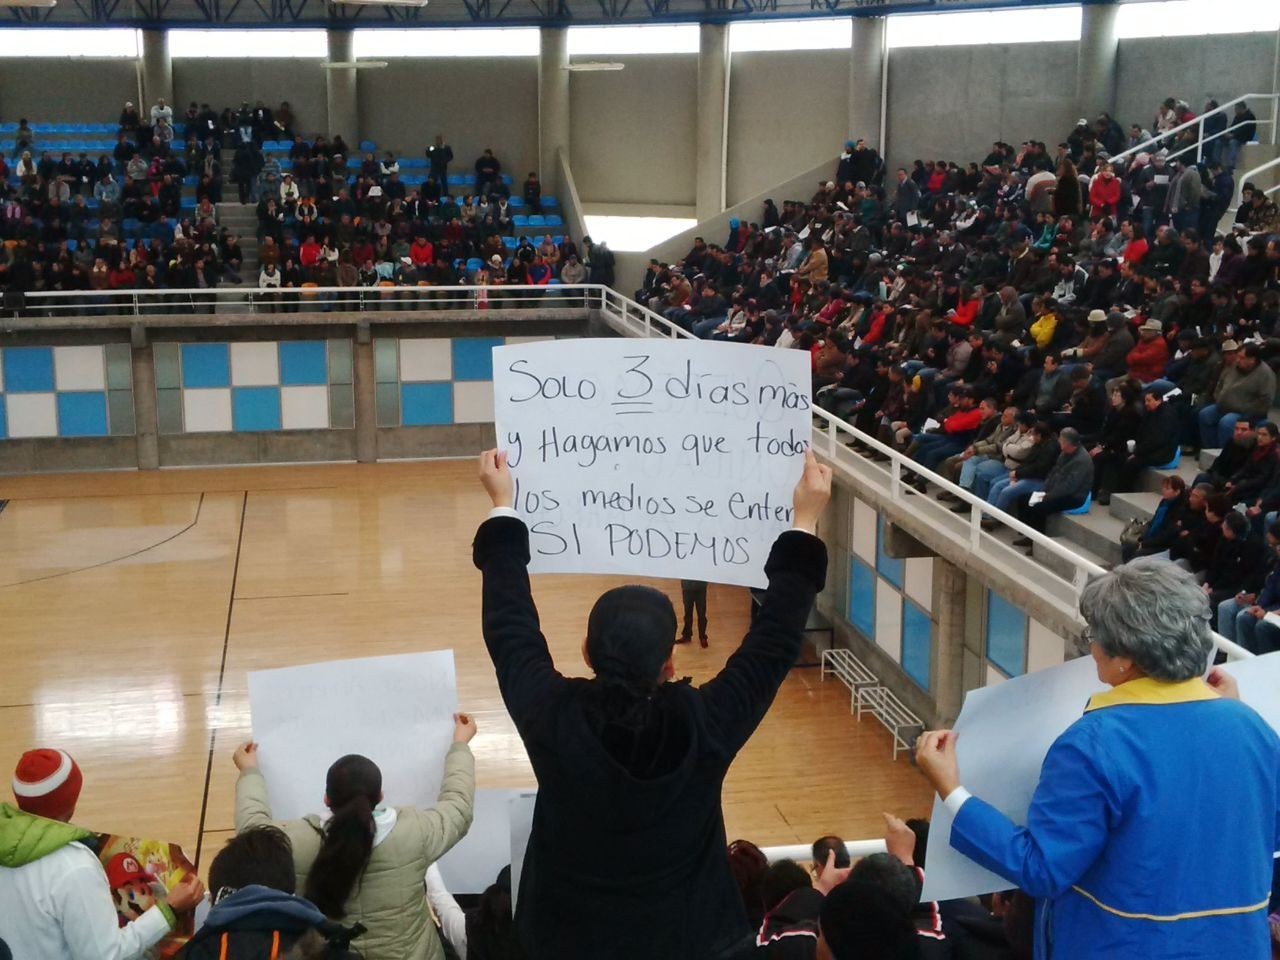 Solo 3 días más
y Hagamos que todos
los medios se enter
SI PODEMOS